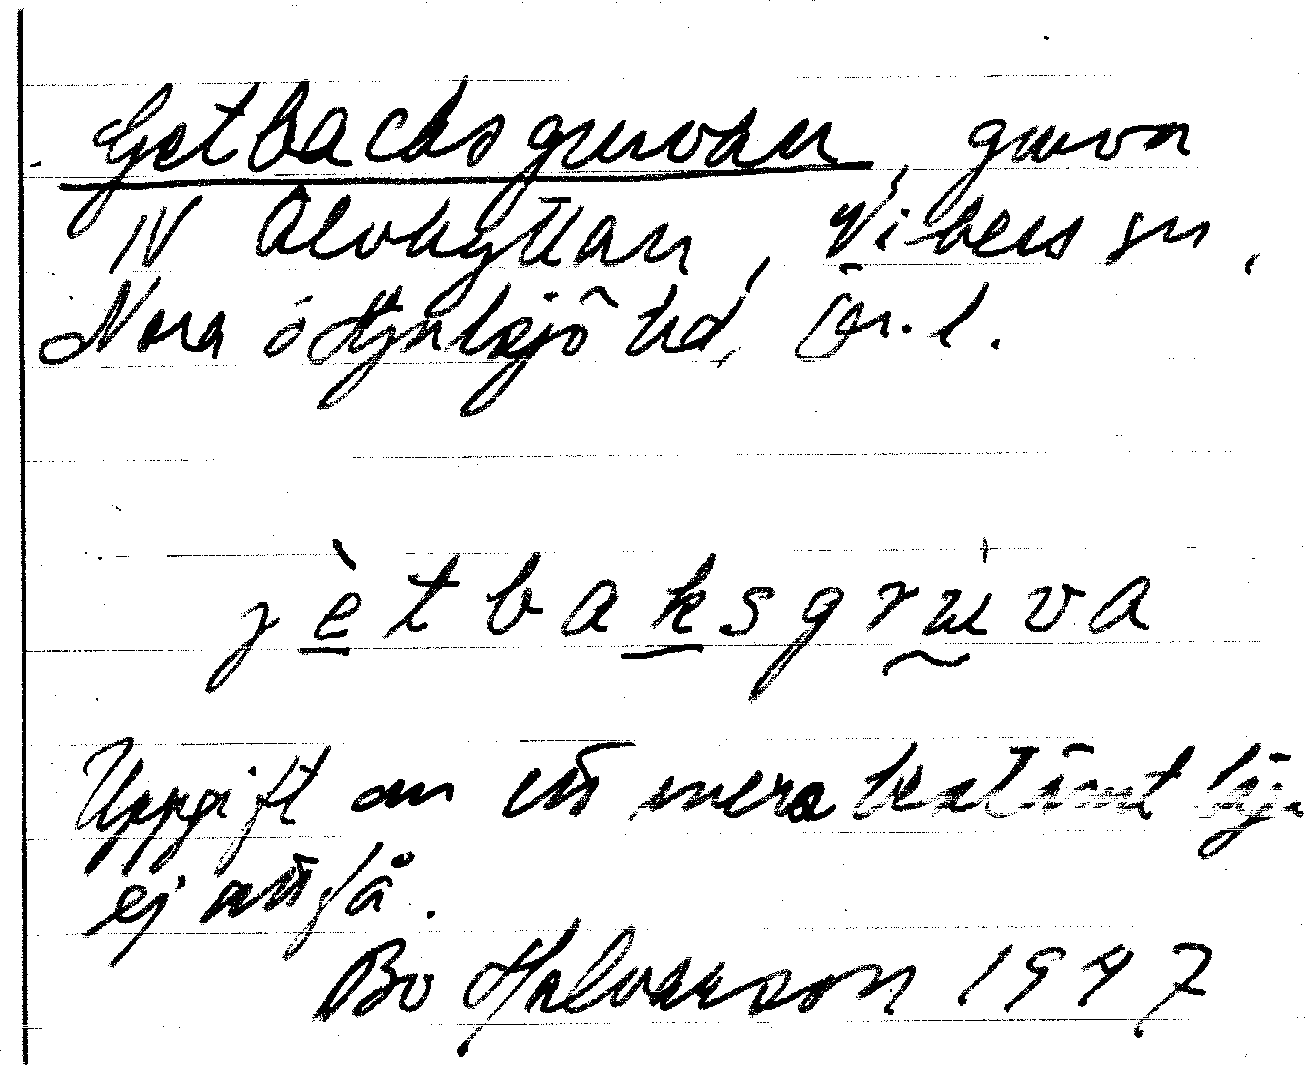 Getbacksgruvan, gruva
NV Älvhyttan, Vikers sn,
Nora o Hjulsjö hd, Ör. l.
jètbaksgruva
Uppgift om ett mera bestämt läge
ej att få.
Bo Halvarson 1997